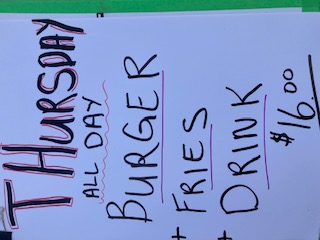 THURSDAY
ALL DAY
BURGER
+ FRIES
+ DRINK
$16.00